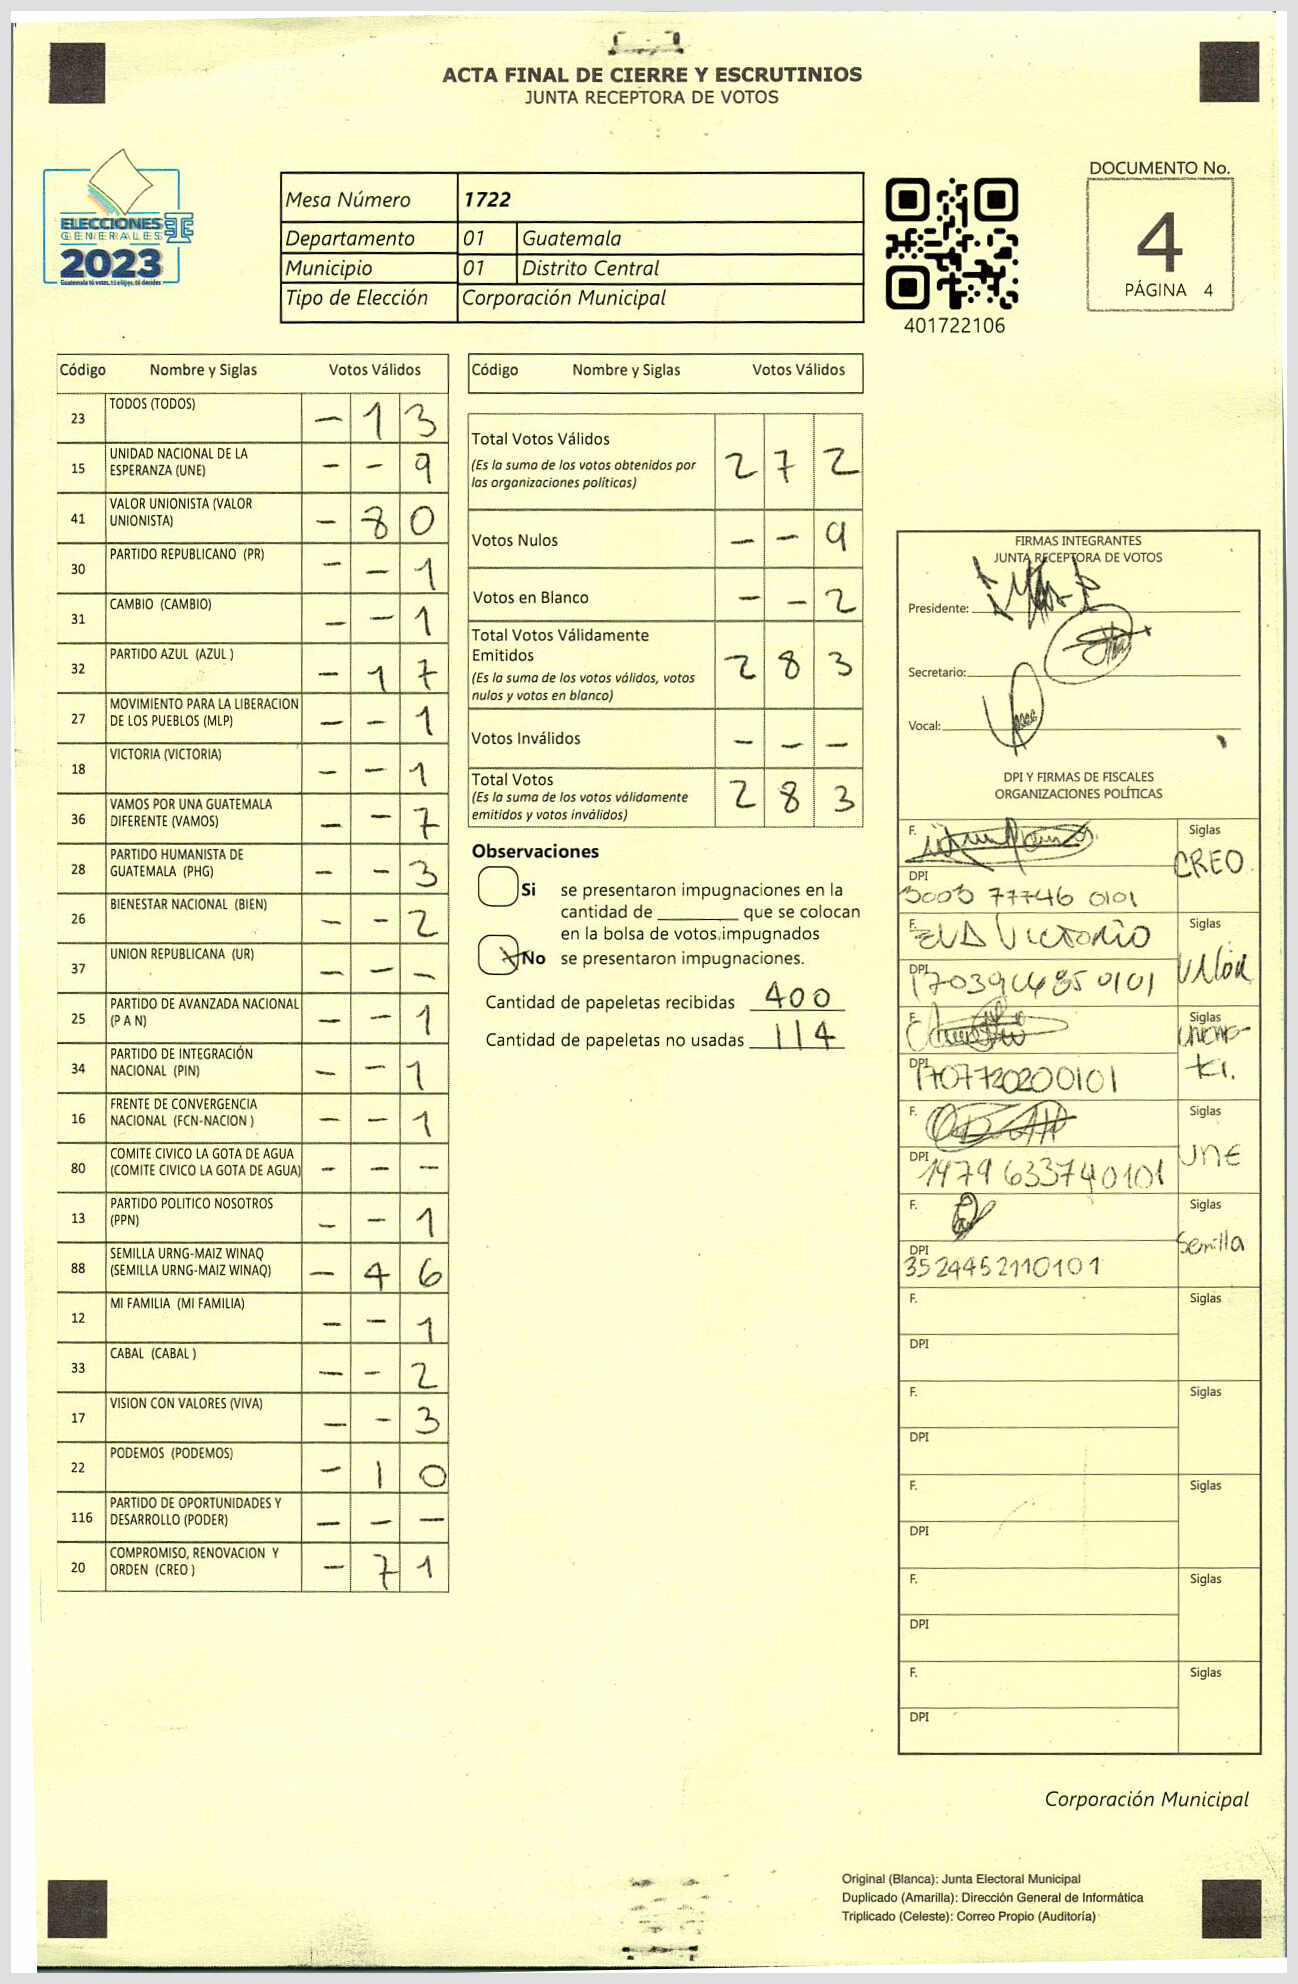 ACTA FINAL DE CIERRE Y ESCRUTINIOS
JUNTA RECEPTORA DE VOTOS
ELECCIONES
GENERALES
2023
Mesa Número 1722
Departamento 01 Guatemala
Municipio 01 Distrito Central
Tipo de Elección Corporación Municipal
401722106
DOCUMENTO No.
4
PÁGINA 4
Código Nombre y Siglas Votos Válidos
23 TODOS (TODOS) - 1 3
15 UNIDAD NACIONAL DE LA ESPERANZA (UNE) - - 9
41 VALOR UNIONISTA (VALOR UNIONISTA) - 8 0
30 PARTIDO REPUBLICANO (PR) - - 1
31 CAMBIO (CAMBIO) - - 1
32 PARTIDO AZUL (AZUL ) - 1 7
27 MOVIMIENTO PARA LA LIBERACION DE LOS PUEBLOS (MLP) - - 1
18 VICTORIA (VICTORIA) - - 1
36 VAMOS POR UNA GUATEMALA DIFERENTE (VAMOS) - - 7
28 PARTIDO HUMANISTA DE GUATEMALA (PHG) - - 3
26 BIENESTAR NACIONAL (BIEN) - - 2
37 UNION REPUBLICANA (UR) - - -
25 PARTIDO DE AVANZADA NACIONAL (P A N) - - 1
34 PARTIDO DE INTEGRACIÓN NACIONAL (PIN) - - 1
16 FRENTE DE CONVERGENCIA NACIONAL (FCN-NACION ) - - 1
80 COMITE CIVICO LA GOTA DE AGUA (COMITE CIVICO LA GOTA DE AGUA) - - -
13 PARTIDO POLITICO NOSOTROS (PPN) - - 1
88 SEMILLA URNG-MAIZ WINAQ (SEMILLA URNG-MAIZ WINAQ) - 4 6
12 MI FAMILIA (MI FAMILIA) - - 1
33 CABAL (CABAL ) - - 2
17 VISION CON VALORES (VIVA) - - 3
22 PODEMOS (PODEMOS) - 1 0
116 PARTIDO DE OPORTUNIDADES Y DESARROLLO (PODER) - - -
20 COMPROMISO, RENOVACION Y ORDEN (CREO ) - 7 1
Código Nombre y Siglas Votos Válidos
Total Votos Válidos 2 7 2
(Es la suma de los votos obtenidos por
las organizaciones políticas)
Votos Nulos - - 9
Votos en Blanco - - 2
Total Votos Válidamente
Emitidos 2 8 3
(Es la suma de los votos válidos, votos
nulos y votos en blanco)
Votos Inválidos - - -
Total Votos 2 8 3
(Es la suma de los votos válidamente
emitidos y votos inválidos)
Observaciones
Si se presentaron impugnaciones en la
cantidad de ________ que se colocan
en la bolsa de votos impugnados
No se presentaron impugnaciones.
Cantidad de papeletas recibidas 400
Cantidad de papeletas no usadas 114
FIRMAS INTEGRANTES
JUNTA RECEPTORA DE VOTOS
Presidente:
Secretario:
Vocal:
DPI Y FIRMAS DE FISCALES
ORGANIZACIONES POLÍTICAS
F. Siglas
CREO
DPI
3003 77746 0101
F. EVA VICTORIO Siglas
VALOR
DPI
F. Siglas
DPI
1707720200101
F. Siglas
UNE
DPI
1479 633740101
F. Siglas
Semilla
DPI
3524452110101
F. Siglas
DPI
F. Siglas
DPI
F. Siglas
DPI
F. Siglas
DPI
F. Siglas
DPI
Corporación Municipal
Original (Blanca): Junta Electoral Municipal
Duplicado (Amarilla): Dirección General de Informática
Triplicado (Celeste): Correo Propio (Auditoría)